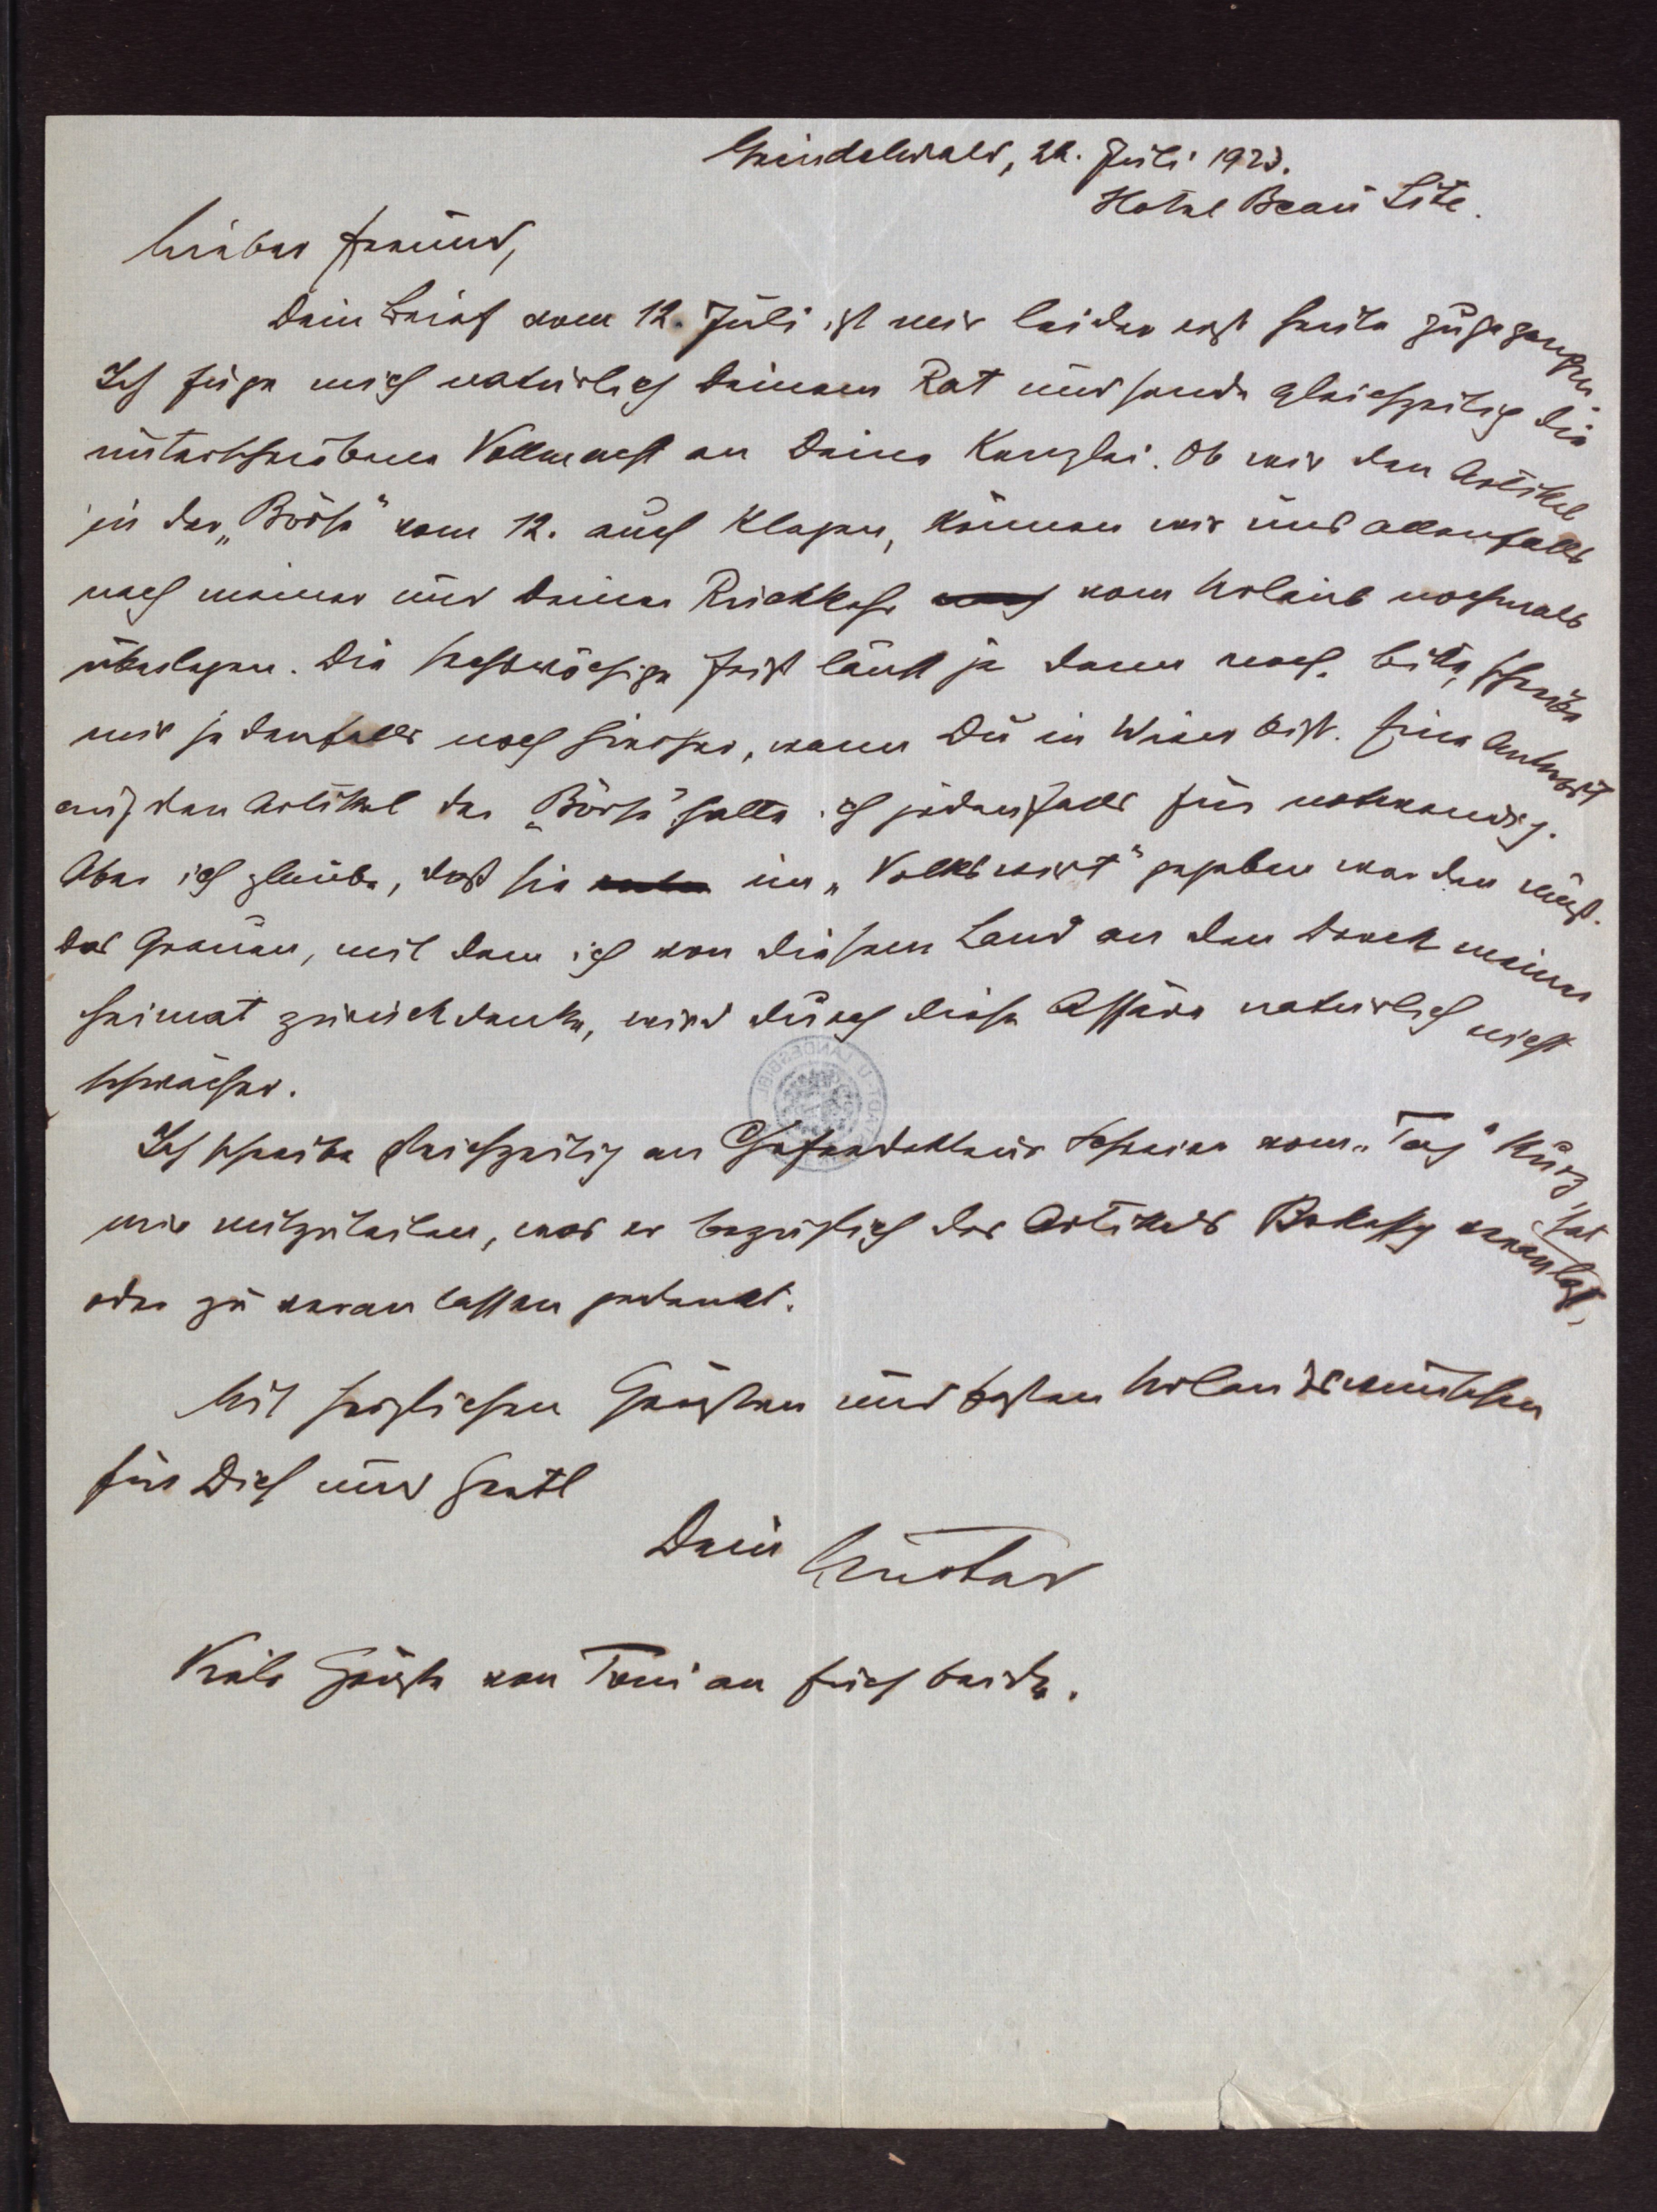 Grindelwald, 22. Juli 1923.
Hotel Beau Site.
Lieber Freund,
Dein Brief vom 12. Juli ist mir leider erst heute zugegangen.
Ich füge mich natürlich Deinem Rat und sende gleichzeitig die
unterschriebene Vollmacht an Deine Kanzlei. Ob wir den Artikel
in der „Börse“ vom 12. auch klagen, können wir uns allenfalls
nach meiner und Deiner Rückkehr vom Urlaub nochmals
überlegen. Die sechswöchige Frist läuft ja dann noch. Bitte, schreibe
mir jedenfalls noch hierher, wann Du in Wien bist. Eine Antwort
auf den Artikel der „Börse“ halte ich jedenfalls für notwendig.
Aber ich glaube, daß sie im „Volkswirt“ gegeben werden muß.
Das Grauen, mit dem ich von diesem Land an den Dreck meiner
Heimat zurückdenke, wird durch diese Affäre natürlich nicht
schwächer.
Ich schreibe gleichzeitig an Chefredakteur Schreier vom „Tag“ kurz,
mir mitzuteilen, was er bezüglich des Artikels Bekessy veranlaßt, hat
oder zu veranlassen gedenkt.
Mit herzlichen Grüßen und besten Urlaubswünschen
für Dich und Gretl
Dein Gustav
Viele Grüße von Toni an Euch beide.